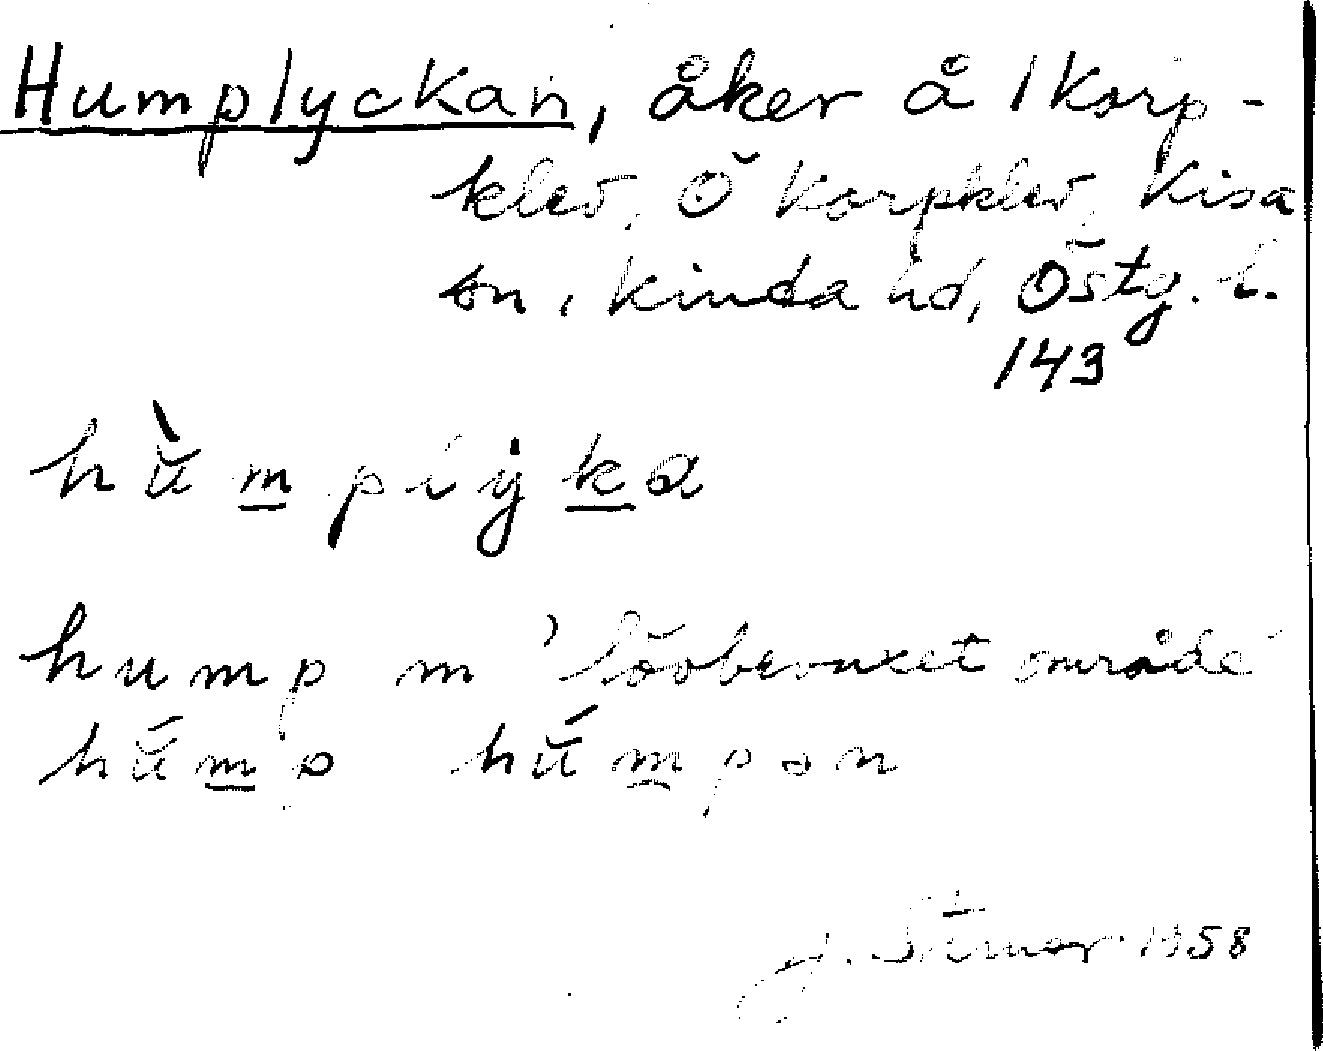 Humplyckan, åker å 1 Korp-
klev, Ö Korpklev, Kisa
sn, Kinda hd, Östg. l.
143
hùmplyka
hump m 'lövbevuxet område'
húmp húmpən
1958